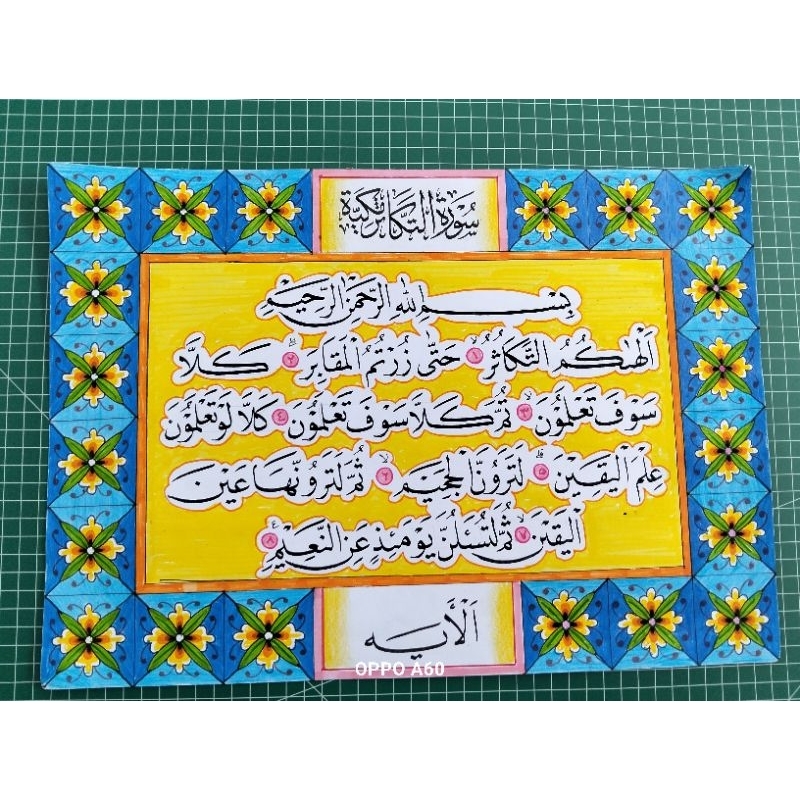 سُورَةُ التَّكَاثُرِ مَكِّيَّة
بِسْمِ اللهِ الرَّحْمٰنِ الرَّحِيْمِ
اَلْهٰىكُمُ التَّكَاثُرُ ۙ١ حَتّٰى زُرْتُمُ الْمَقَابِرَ ۗ٢ كَلَّا
سَوْفَ تَعْلَمُوْنَ ۙ٣ ثُمَّ كَلَّا سَوْفَ تَعْلَمُوْنَ ٤ كَلَّا لَوْ تَعْلَمُوْنَ
عِلْمَ الْيَقِيْنِ ۗ٥ لَتَرَوُنَّ الْجَحِيْمَ ۙ٦ ثُمَّ لَتَرَوُنَّهَا عَيْنَ
الْيَقِيْنِ ۙ٧ ثُمَّ لَتُسْـَٔلُنَّ يَوْمَىِٕذٍ عَنِ النَّعِيْمِ ٨
اَلْأَيَه
OPPO A60